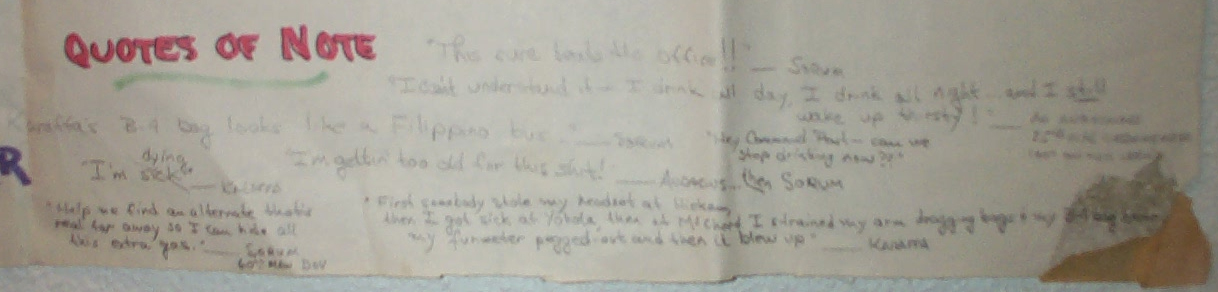 QUOTES OF NOTE
"This sure beats the office!!" — SORUM
"I can't understand it — I drink all day, I drink all night...and I still
wake up thirsty!" —
's B-4 bag looks like a Filippino bus." — SORUM
"Hey Command Post — can we
stop drinking now??"
"I'm gettin' too old for this shit!" — ANDREWS...then SORUM
dying
"I'm sick" —
"Help me find an alternate that's
real far away so I can hide all
this extra gas." — SORUM
"First somebody stole my headset at Hickam,
then I got sick at Yokota, then at McChord I strained my arm dragging bags & my
my funmeter pegged-out and then it blew up" —
R